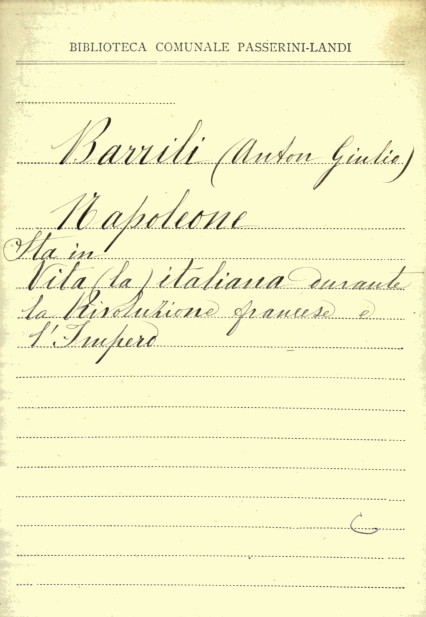 BIBLIOTECA COMUNALE PASSERINI-LANDI
Barrili (Anton Giulio)
Napoleone
Sta in
Vita (la) italiana durante
la Rivoluzione francese e
l'Impero